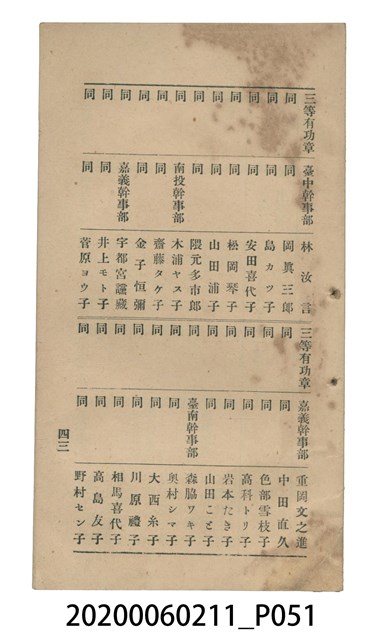 三等有功章 臺中幹事部 林汝言
同 同 岡眞三郎
同 同 島カツ子
同 同 安田喜代子
同 同 松岡琴子
同 同 山田浦子
同 同 隈元多市郎
同 南投幹事部 木浦ヤス子
同 同 齋藤タケ子
同 同 金子恒彌
同 嘉義幹事部 宇都宮謙藏
同 同 井上モト子
同 同 菅原ヨウ子
三等有功章 嘉義幹事部 重岡文之進
同 同 中田直久
同 同 色部雪枝子
同 同 高科トリ子
同 同 岩本たき子
同 同 山田こと子
同 臺南幹事部 森脇ワキ子
同 同 奥村シマ子
同 同 大西糸子
同 同 川原禮子
同 同 相馬喜代子
同 同 高島友子
同 同 野村セン子
四三
20200060211_P051